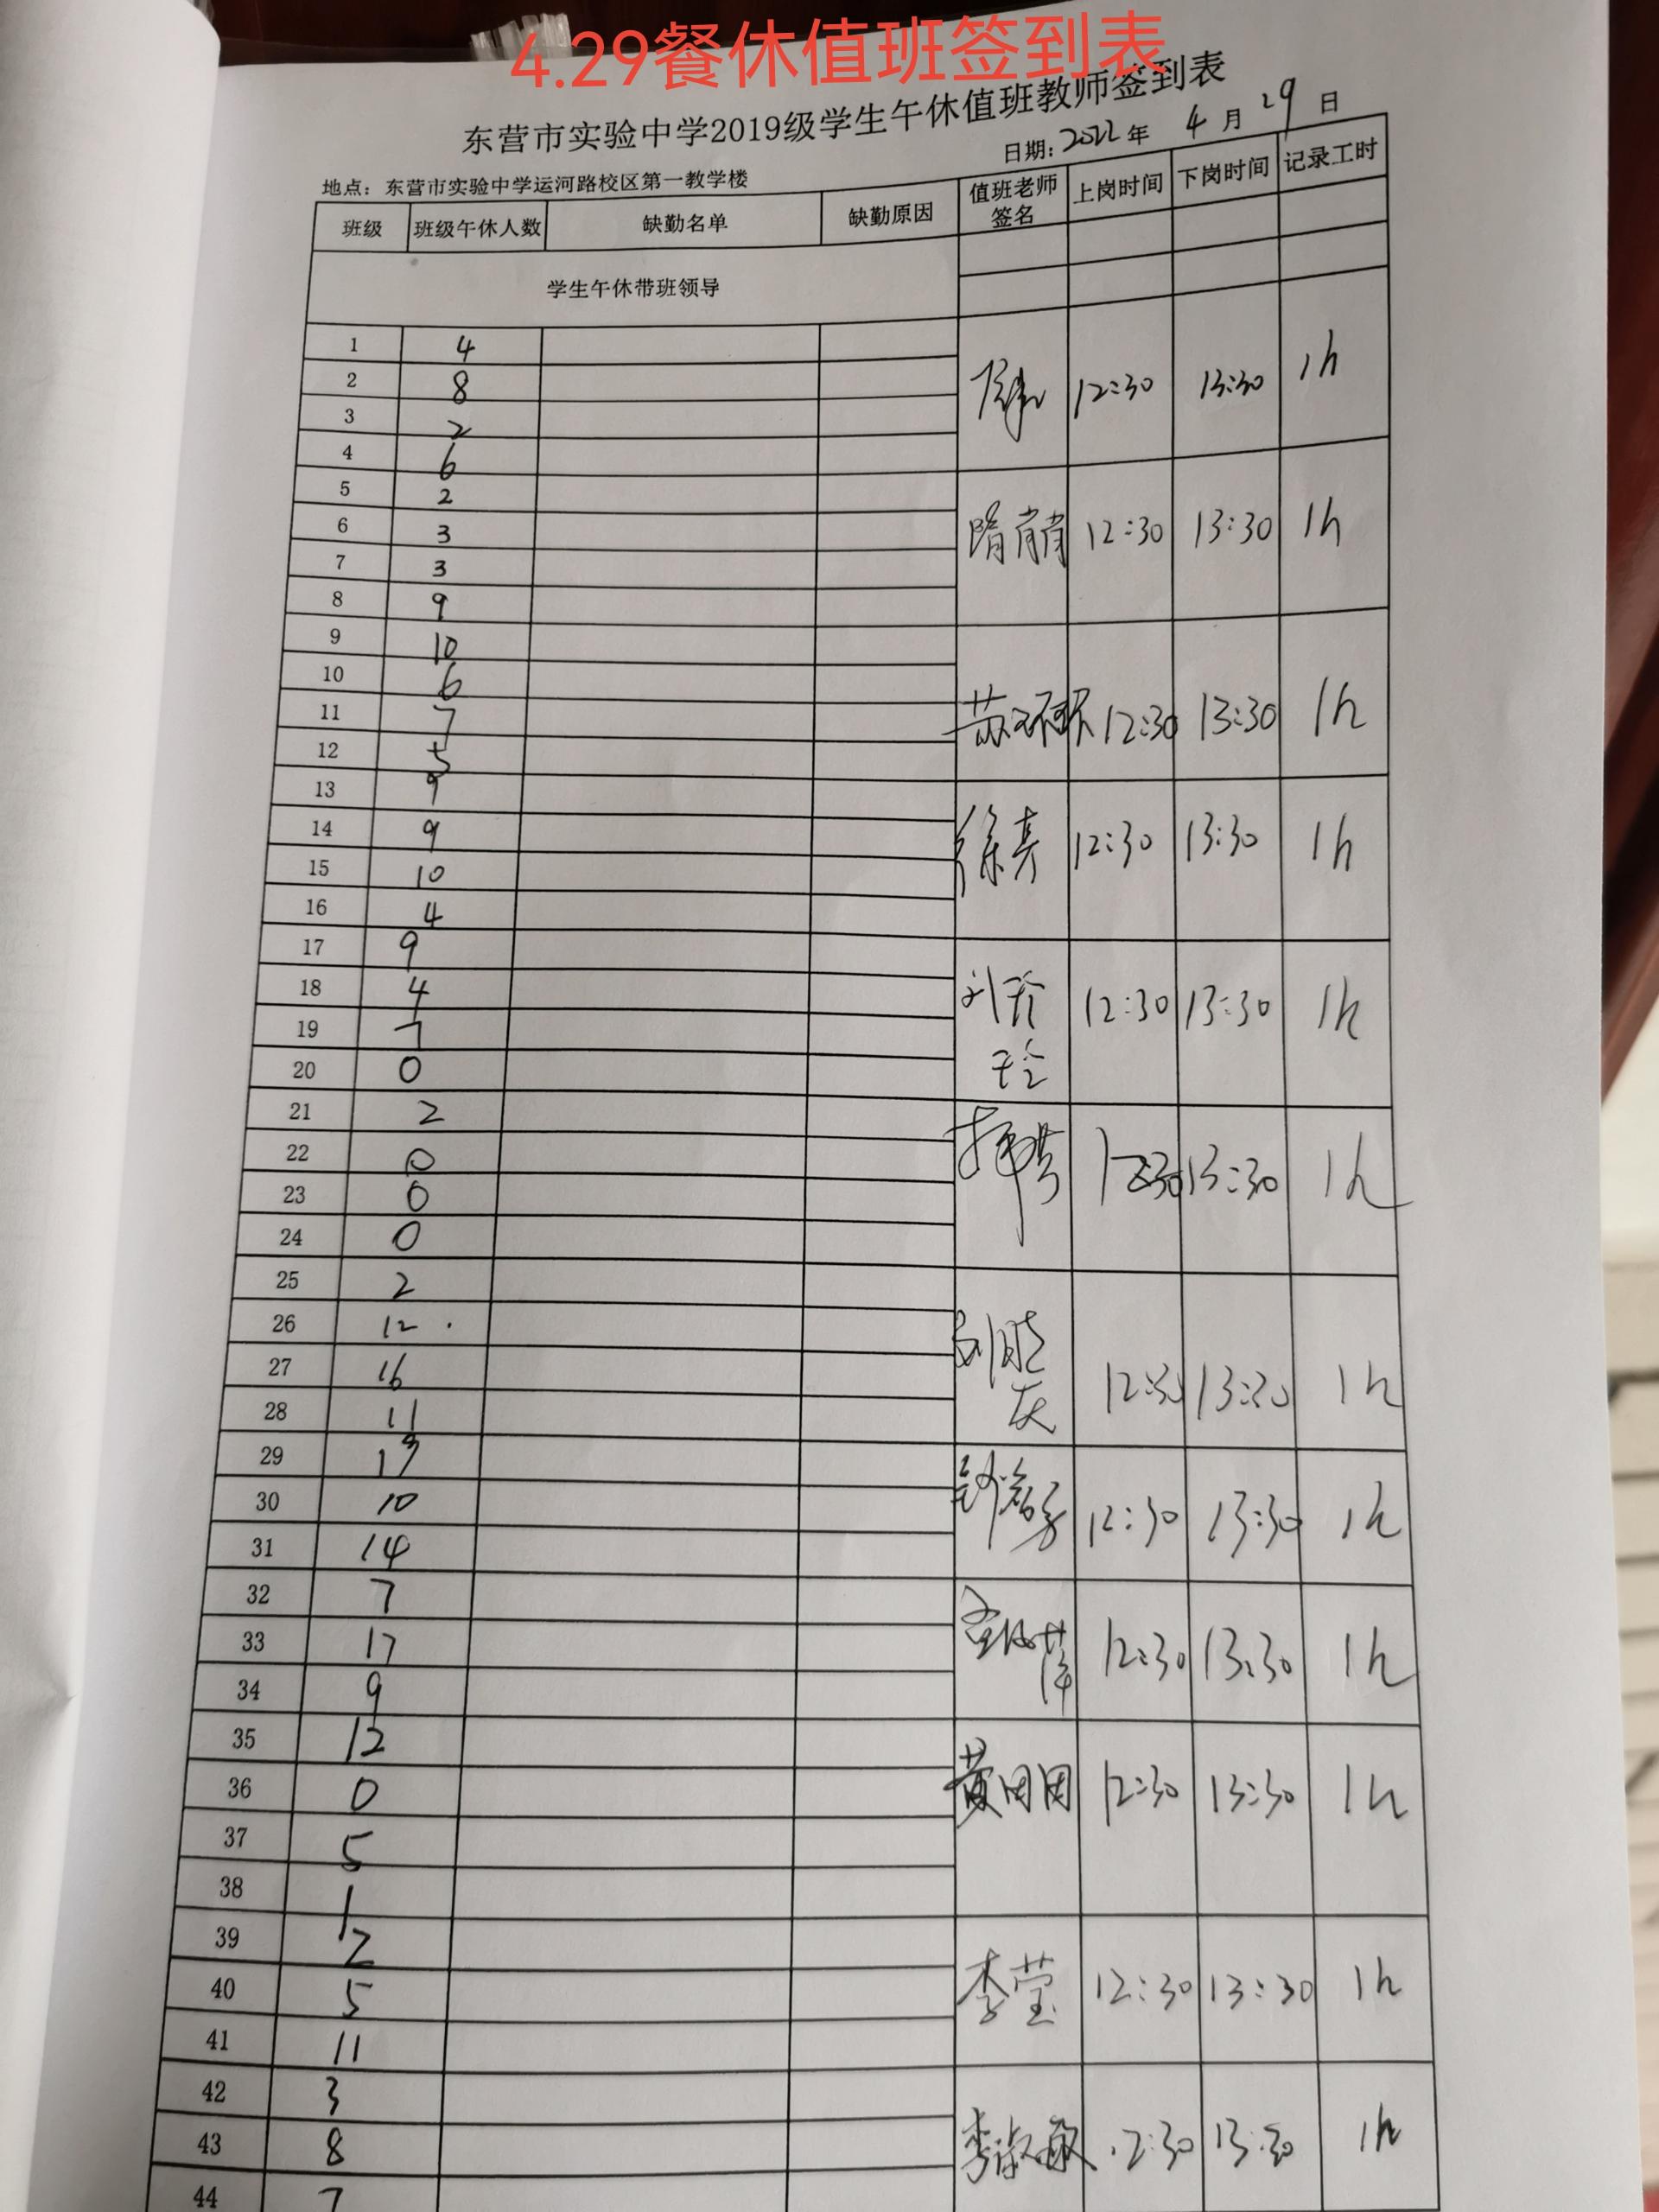 4.29餐休值班签到表
东营市实验中学2019级学生午休值班教师签到表
日期: 2022 年 4 月 29 日
地点：东营市实验中学运河路校区第一教学楼
班级 班级午休人数 缺勤名单 缺勤原因 值班老师签名 上岗时间 下岗时间 记录工时
学生午休带班领导
1 4
2 8 12:30 13:30 1h
3 2
4 6
5 2
6 3 隋肖肖 12:30 13:30 1h
7 3
8 9
9 10
10 6
11 7 12:30 13:30 1h
12 5
13 9
14 9 徐亮 12:30 13:30 1h
15 10
16 4
17 9
18 4 12:30 13:30 1h
19 7
20 0
21 2
22 0 12:30 13:30 1h
23 0
24 0
25 2
26 12
27 16 12:30 13:30 1h
28 11
29 19
30 10 12:30 13:30 1h
31 14
32 7
33 17 12:30 13:30 1h
34 9
35 12
36 0 黄团团 12:30 13:30 1h
37 5
38 1
39 2
40 5 李莹 12:30 13:30 1h
41 11
42 3
43 8 李淑敏 12:30 13:30 1h
44 7